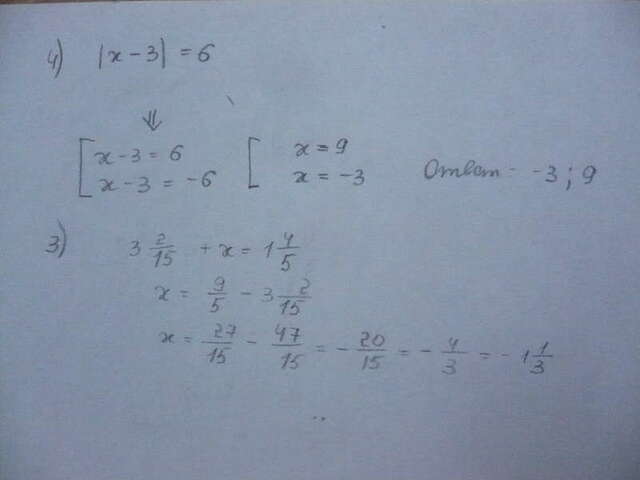 4) |x - 3| = 6
⇓
[ x - 3 = 6 [ x = 9
x - 3 = -6 x = -3 Ответ: -3; 9
3) 3 2/15 + x = 1 4/5
x = 9/5 - 3 2/15
x = 27/15 - 47/15 = - 20/15 = - 4/3 = - 1 1/3